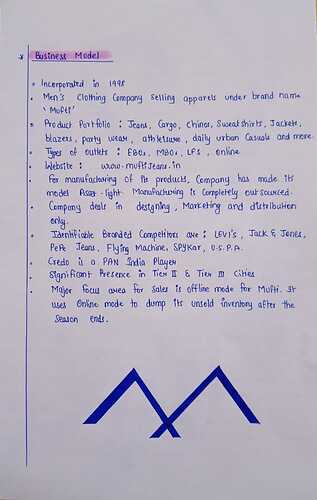 * Business Model
• Incorporated in 1998
• Men's Clothing Company selling apparels under brand name
'Mufti'
• Product Portfolio : Jeans, Cargo, Chinos, Sweatshirts, Jackets,
blazers, party wear, athleisure, daily urban Casuals and more.
• Types of outlets : EBOs, MBOs, LFS, Online
• Website : www.muftijeans.in
• For manufacturing of its products, Company has made its
model Asset-light. Manufacturing is Completely outsourced.
• Company deals in designing, Marketing and distribution
only.
• Identifiable Branded Competitors are : LEVI's, Jack & Jones,
Pepe Jeans, Flying Machine, SPYKAR, U.S.P.A.
• Credo is a PAN India Player
• Significant Presence in Tier II & Tier III Cities
• Major focus area for Sales is offline mode for Mufti. It
uses Online mode to dump its unsold inventory after the
Season ends.